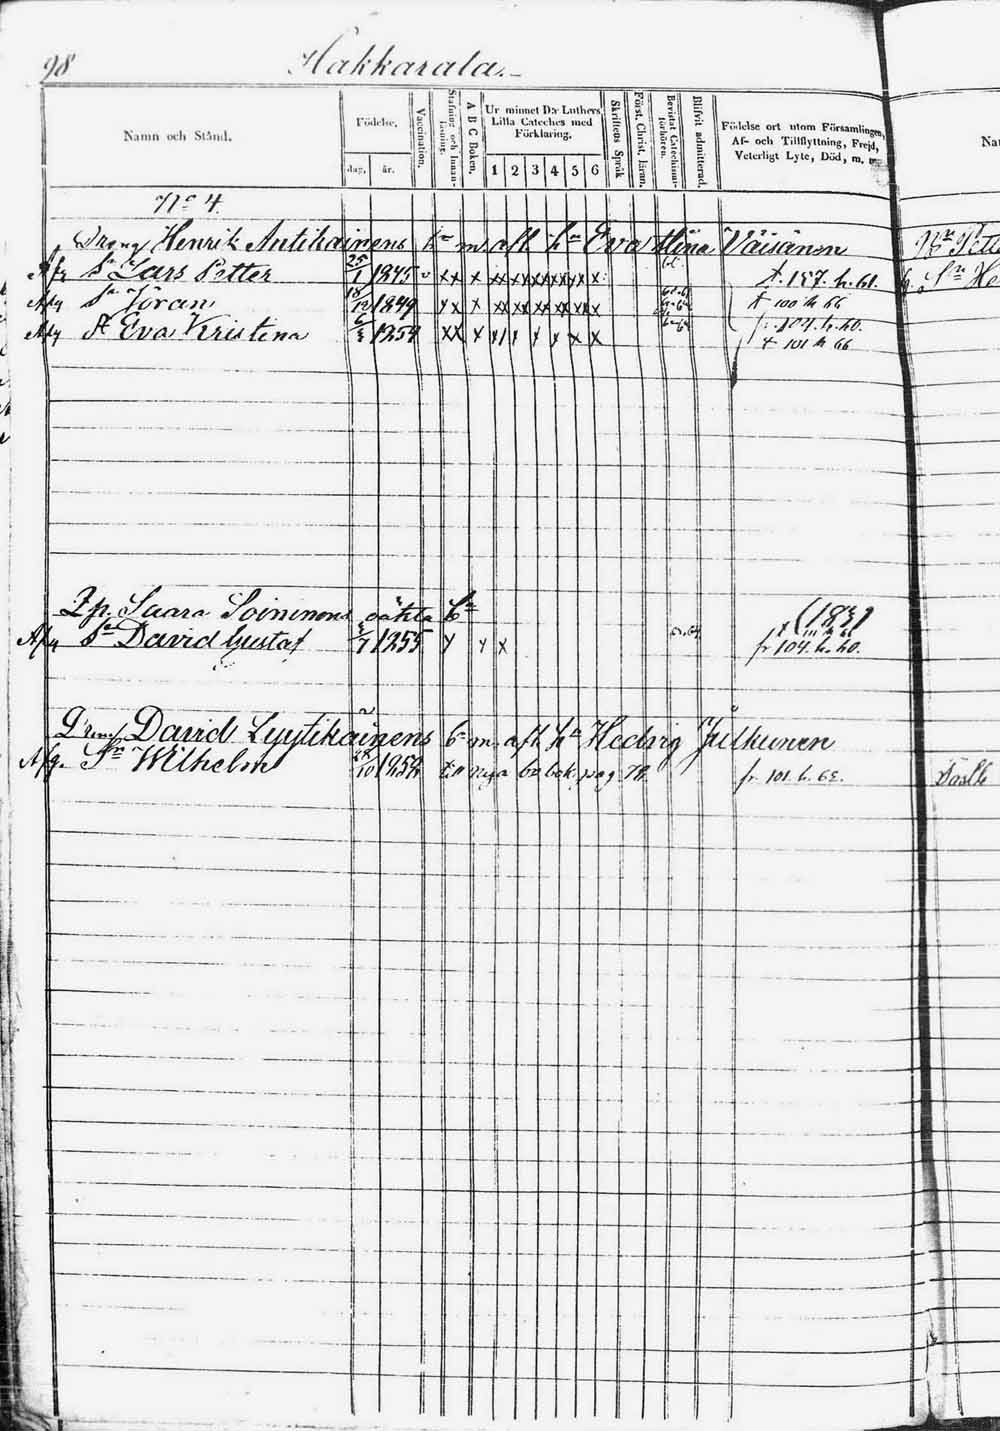 98 Hakkarala.
Namn och Stånd.
Födelse,
dag, år.
Vaccination.
Stafning och Innan-läsning.
A B C Boken.
Ur minnet D:r Luthers Lilla Cateches med Förklaring.
1 2 3 4 5 6
Skriftens Språk
Först. Christ. läran.
Bevistat Catechismi-förhören.
Blifvit admitterad.
Födelse ort utom Församlingen,
Af- och Tillflyttning, Frejd,
Veterligt Lyte, Död, m. m.
Na
No 4.
Dräng Henrik Antikainens bn m aft hu Eva Stina Väisänen
Sn Lars Petter 25/1 1845 v xx x xx xx xx xx xx x t. 157. h. 61.
Afg Sn Jöran 18/12 1849 x x x t 100 h 66
fr. 104. h. 60.
Afg D Eva Kristina 1854 xx x x x x x x t 101 h 66
Saara Soininens oäkta bn
Afg Sn David Gustaf 1855 fr 104. h. 60.
Dreng David Lyytikäinens bn m. aft hu Hedvig Julkunen
Afg. Sn Wilhelm 28/10 1852 till nya bo bok pag 78. fr. 101. h. 62.